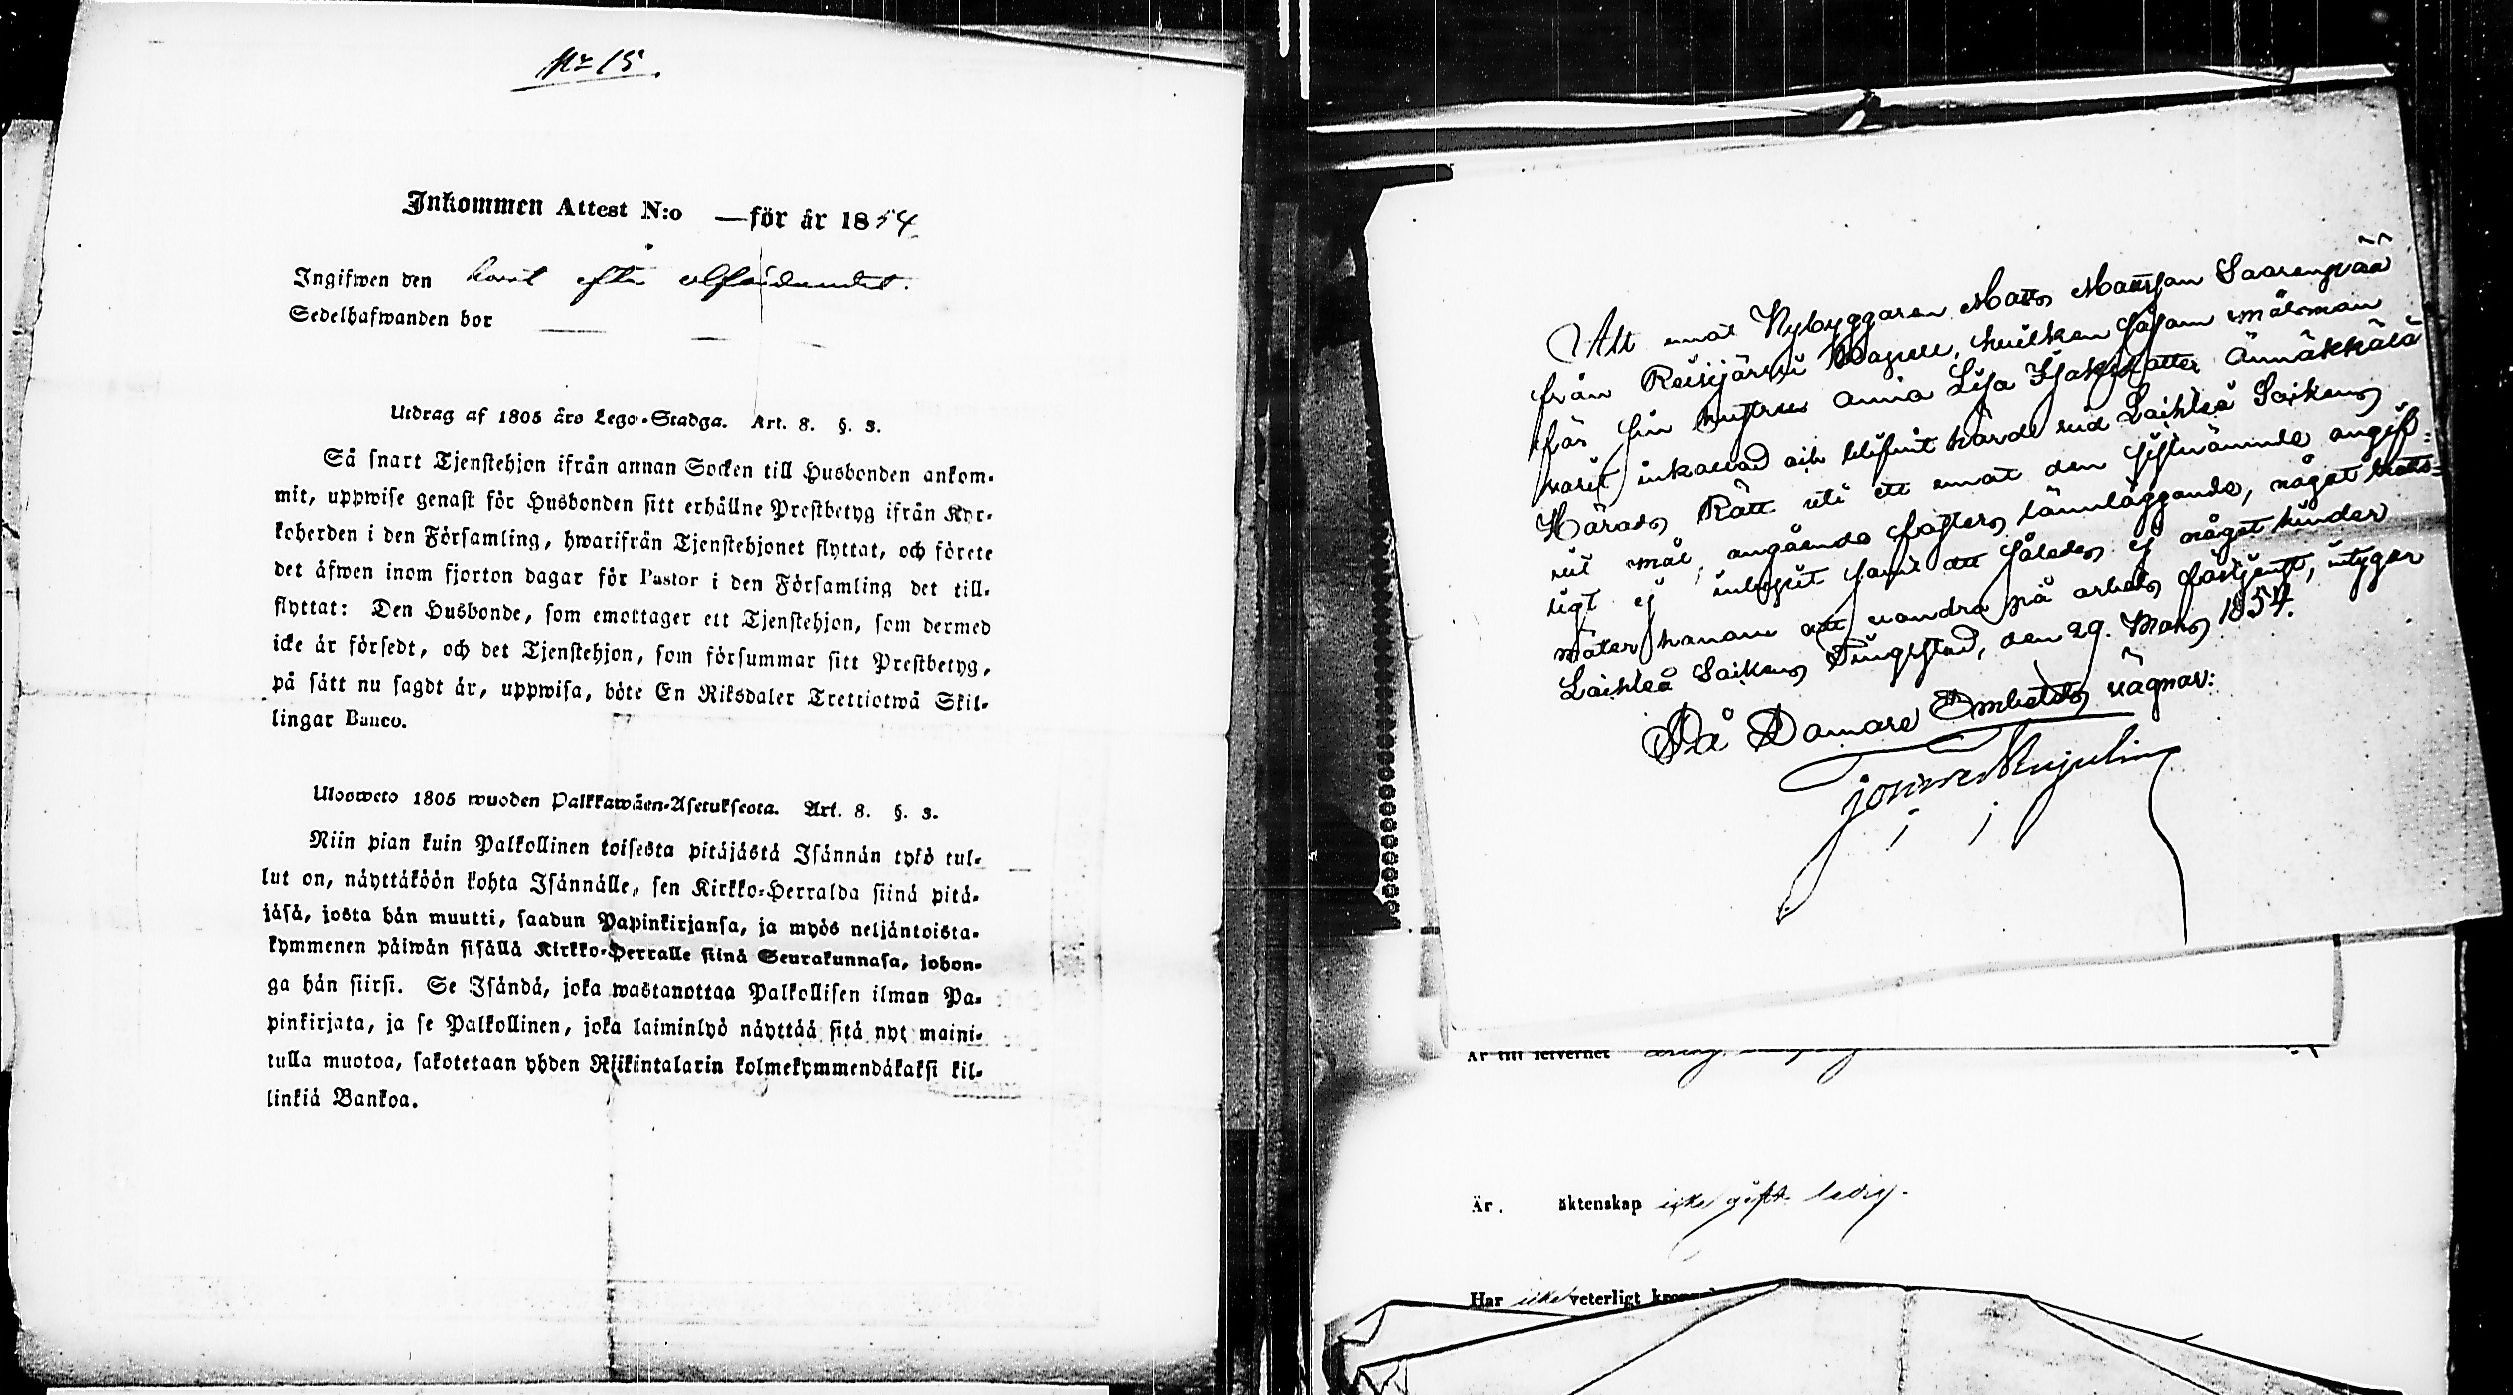 No 15.
Inkommen Attest N:o — för år 1854
Ingifwen den kort efter utfärdandet.
Sedelhafwanden bor
Utdrag af 1805 års Lego-Stadga. Art. 8. §. 3.
Så snart Tjenstehjon ifrån annan Socken till Husbonden ankom-
mit, uppwise genast för Husbonden sitt erhållne Prestbetyg ifrån Kyr-
koherden i den Församling, hwarifrån Tjenstehjonet flyttat, och förete
det äfwen inom fjorton dagar för Pastor i den Församling det till-
flyttat: Den Husbonde, som emottager ett Tjenstehjon, som dermed
icke är försedt, och det Tjenstehjon, som försummar sitt Prestbetyg,
på sätt nu sagdt är, uppwisa, böte En Riksdaler Trettiotwå Skil-
lingar Banco.
Ulosweto 1805 wuoden Palkkawäen-Asetuksesta. Art. 8. §. 3.
Niin pian kuin Palkollinen toisesta pitäjästä Isännän tykö tul-
lut on, näyttäköön kohta Isännälle, sen Kirkko-Herralda siinä pitä-
jäsä, josta hän muutti, saadun Papinkirjansa, ja myös neljäntoista-
kymmenen päiwän sisällä Kirkko-Herralle siinä Seurakunnasa, johon-
ga hän siirsi. Se Isändä, joka wastanottaa Palkollisen ilman Pa-
pinkirjata, ja se Palkollinen, joka laiminlyö näyttää sitä nyt maini-
tulla muotoa, sakotetaan yhden Riikintalarin kolmekymmendäkaksi kil-
linkiä Bankoa.
Att emot Nybyggaren Matts Mattsson Saarenpää
från Reisjärvi Capell, hvilken såsom målsman
för sin hustru Anna Lisa Isaksdotter Ännäkkälä
varit inkallad och tillstädes vid Laihela Sockens
Härads Rätt uti ett emot den sistnämnda angif-
vit mål, angående fosters lönnläggande, något
ligt ej inlupit samt att således ej något hinder
möter honom att vandra på arbets förtjenst, intygar
Laihela Sockens Tingsstad, den 29. Mars 1854.
På Domare Embetets vägnar:
Är till lefvernet
Är. äktenskap icke gift. ledig.
Har icke veterligt